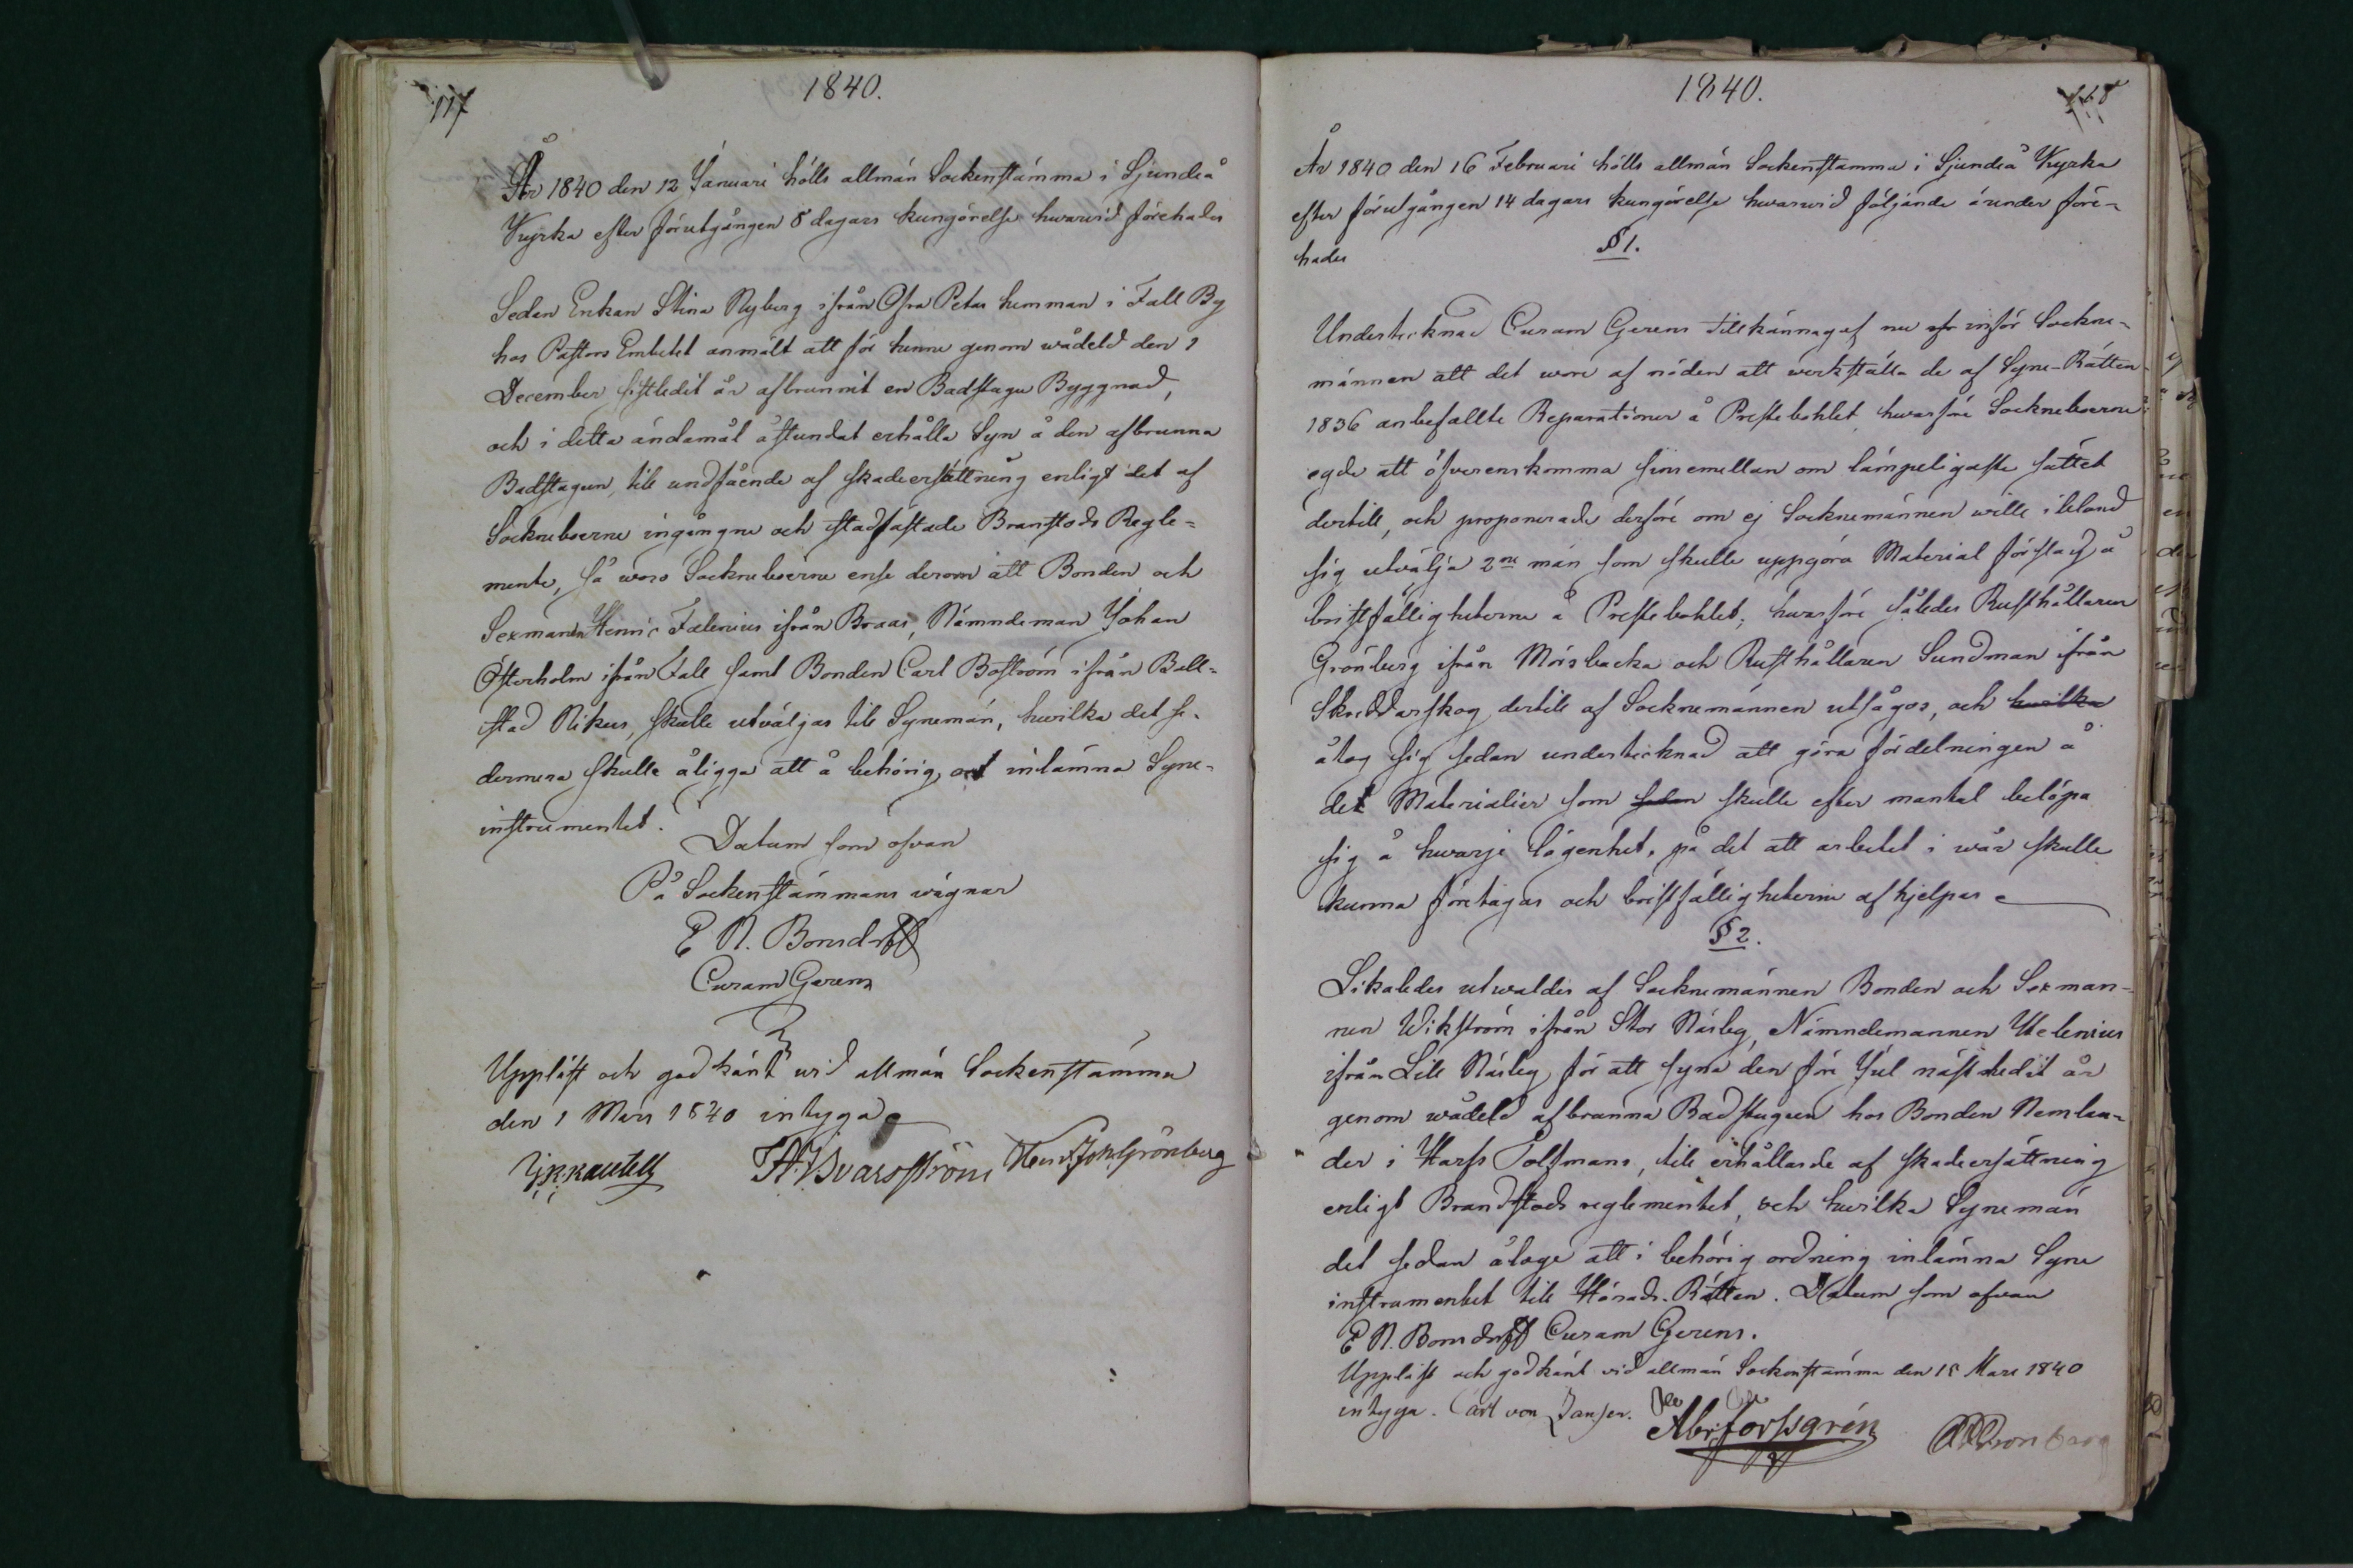 117
1840.
År 1840 den 12 Januari hölls allmän Sockenstämma i Sjundeå
Kyrka efter förutgången 8 dagars kungörelse hwarwid förehades
Sedan Enkan Stina Nyberg ifrån Ofra Petas hemman i Fall By
hos Pastors Embetet anmält att för henne genom wådeld den 1
December sistledit år afbrunnit en Badstugu Byggnad,
och i detta ändamål åstundat erhålla Syn å den afbrunna
Badstugun, till undfående af skadeersättning enligt det af
Sockneboerne ingångne och stadfästade Branstods Regle-
mente, så woro Socknboerne ense derom att Bonden och
Sexmannen Henric Fælenius ifrån Braas, Nämndeman Johan
Österholm ifrån Fall samt Bonden Carl Boström ifrån Böll-
stad Nikus, skulle utväljas till Synemän, hwilka det se-
dermera skulle åligga att å behörig ort inlämna Syne-
instrumentet.
Datum som ofvan
På Sockenstämmans wägnar
E N. Bonsdorff
Curam Gerens
Uppläst och godkänt wid allmän Sockenstämma
den 1 Mars 1840 intyga
Henr. Joh. Grönberg
118
1840.
År 1840 den 16 Februari hölls allmän Sockenstamma i Sjundeå Kyrka
efter förutgången 14 dagars kungörelse hwarwid följande ärender före-
hades
§ 1.
Undertecknad Curam Gerens tillkännagaf nu inför Sockne-
männen att det wore af nöden att werkställa de af Syne-Rätten
1836 anbefallte Reparationer å Prestebohlet, hwarföre Socknboerne
egde att öfverenskomma sinsemellan om lämpeligaste sättet
dertill, och proponerade derföre om ej Socknemännen wille ibland
sig utvälja 2ne män som skulle uppgöra Material förslag å
bristfälligheterne å Prestebohlet; hwarföre således Rusthållaren
Grönberg ifrån Mörsbacka och Rusthållaren Sundman ifrån
Skräddarskog dertill af Socknemännen utsågos, och hwilka
åtog sig sedan undertecknad att göra fördelningen å
det Materialier som sedan skulle efter mantal belöpa
sig å hwarje lägenhet, på det att arbetet i wår skulle
kunna företagas och bristfälligheterne afhjelpas
§ 2.
Likaledes utwaldes af Socknemännen Bonden och Sexman-
nen Wikström ifrån Stor Närleg, Nämndemannen Helenius
ifrån Lill Närleg för att syna den före Jul nästledit år
genom wådeld afbrunna Badstugun hos Bonden Nemlan-
der i Harfs Tolfmans, till erhållande af skadeersättning
enligt Brandstods reglementet, och hwilka Synemän
det sedan ålåge att i behörig ordning inlämna Syne
instrumentet till Härads-Rätten. Datum som ofvan
E N. Bonsdorff Curam Gerens.
Uppläst och godkänt vid allmän Sockenstämma den 15 Mars 1840
intyga. Carl von Jansen. Abr: Forssgrén